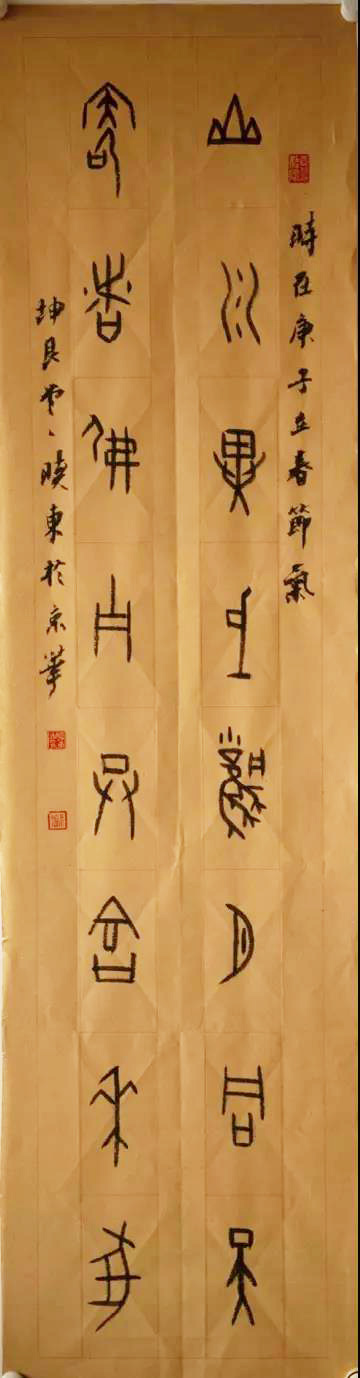 時在庚子立春節氣
山川異域風月同天
寄諸佛子共結來緣
坤艮堂主曉東於京華